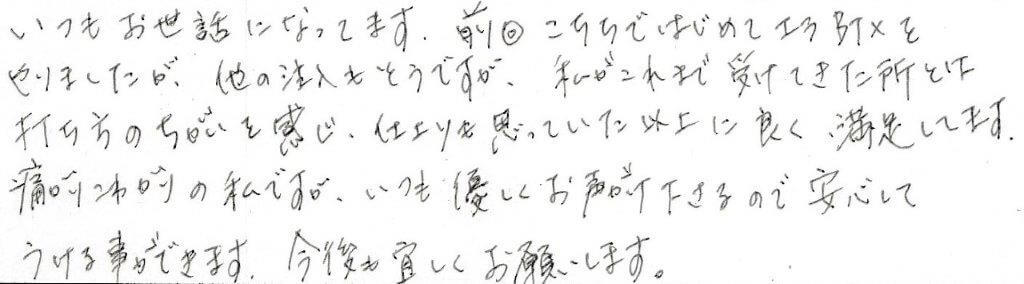 いつもお世話になってます. 前回こちらではじめてエラBTXを
やりましたが、他の注入もそうですが、私がこれまで受けてきた所とは
打ち方のちがいを感じ、仕上りも思っていた以上に良く、満足してます.
痛がりこわがりの私ですが、いつも優しくお声がけ下さるので安心して
うける事ができます. 今後も宜しくお願いします。